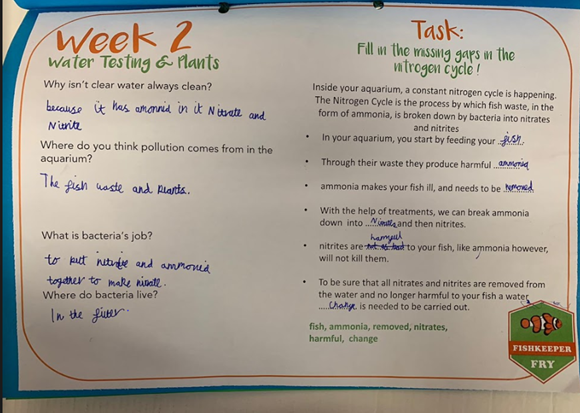 Week 2
Water Testing & Plants
Why isn't clear water always clean?
because it has amonnia in it Nitrate and
Nitrite
Where do you think pollution comes from in the
aquarium?
The fish waste and plants.
What is bacteria's job?
to put nitrite and ammonia
together to make nitrate.
Where do bacteria live?
In the filter.
Task:
Fill in the missing gaps in the
nitrogen cycle!
Inside your aquarium, a constant nitrogen cycle is happening.
The Nitrogen Cycle is the process by which fish waste, in the
form of ammonia, is broken down by bacteria into nitrates
and nitrites
• In your aquarium, you start by feeding your ..fish..
• Through their waste they produce harmful ..ammonia
• ammonia makes your fish ill, and needs to be removed
• With the help of treatments, we can break ammonia
down into ...Nitrates and then nitrites.
harmful
• nitrites are to your fish, like ammonia however,
will not kill them.
• To be sure that all nitrates and nitrites are removed from
the water and no longer harmful to your fish a water
....Change is needed to be carried out.
fish, ammonia, removed, nitrates,
harmful, change
FISHKEEPER
FRY